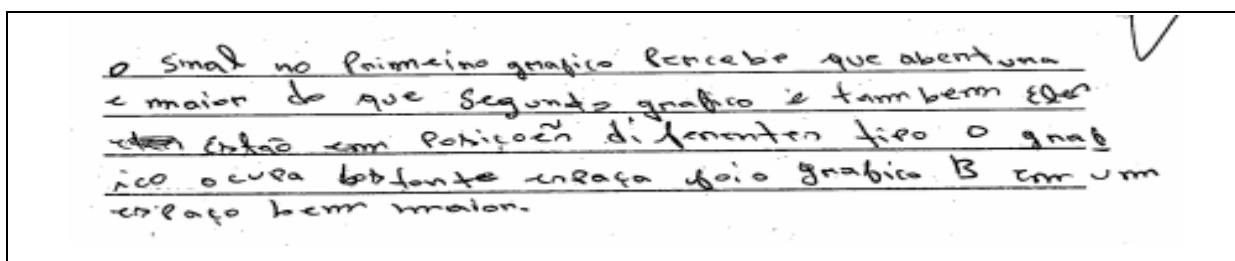 o sinal no Primeiro grafico Percebe que abertura
e maior do que Segundo grafico e tambem Eles
Estão em Posiçoẽs diferentes tipo o graf
ico ocupa bastante espaça foio grafico B em um
espaço bem maior.